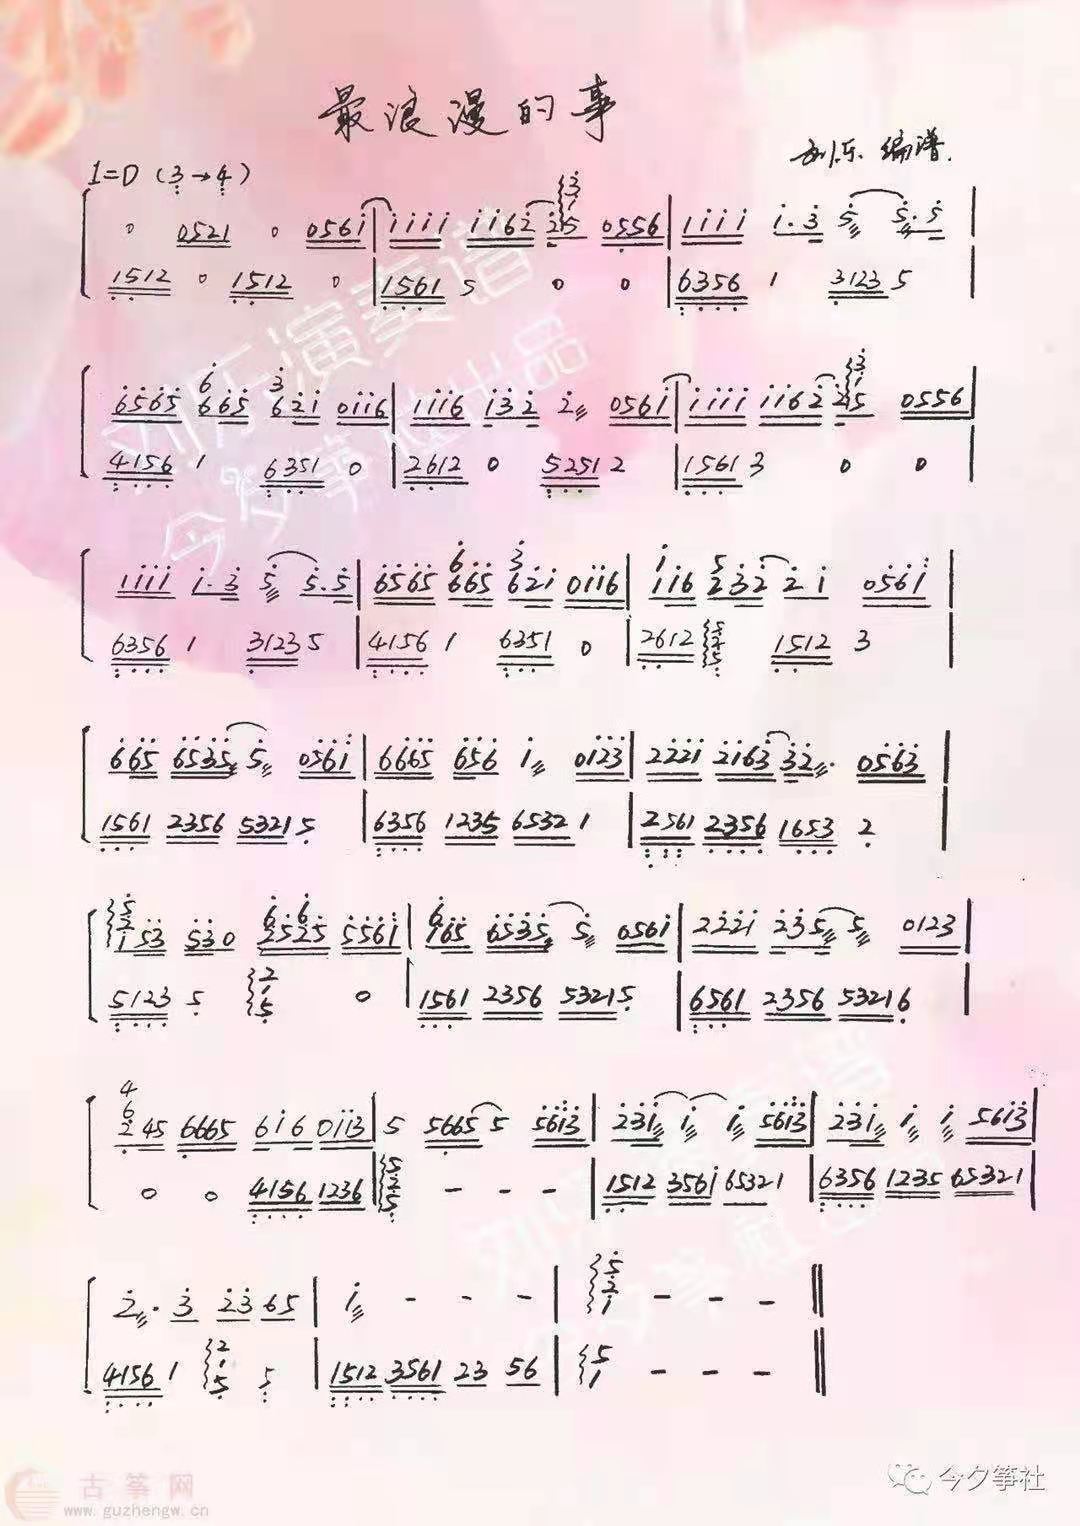 最浪漫的事
1=D (3→4)
刘乐 编谱.
0 0521 0 0561 | 1111 1162 215 0556 | 1111 1·3 5 5·5 |
1512 0 1512 0 | 1561 5 0 0 | 6356 1 3123 5 |
6565 665 621 0116 | 1116 132 2 0561 | 1111 1162 215 0556
4156 1 6351 0 | 2612 0 5251 2 | 1561 3 0 0 |
1111 1·3 5 5·5 | 6565 665 621 0116 | 116 232 21 0561 |
6356 1 3123 5 | 4156 1 6351 0 | 2612 1512 3 |
665 6535 5 0561 | 6665 656 1 0123 | 2221 2163 32· 0563 |
1561 2356 5321 5 | 6356 1235 6532 1 | 2561 2356 1653 2 |
153 530 2525 5561 | 165 6535 5 0561 | 2221 235 5 0123 |
5123 5 0 | 1561 2356 5321 5 | 6561 2356 5321 6 |
45 6665 616 0113 | 5 5665 5 5613 | 231 1 1 5613 | 231 1 1 5613 |
0 0 4156 1236 | - - - | 1512 3561 65321 | 6356 1235 65321 |
2· 3 23 65 | 1 - - - | - - - ||
4156 1 5 | 1512 3561 23 56 | - - - ||
刘乐演奏谱
今夕筝社出品
古筝网
www.guzhengw.cn
今夕筝社